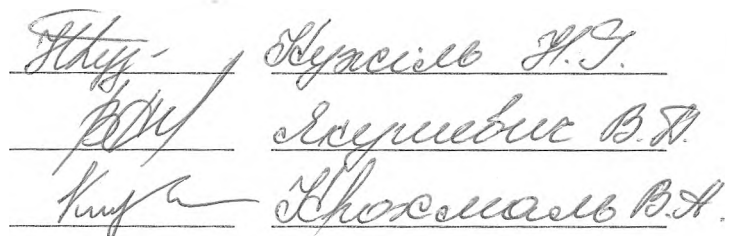 Кужіль Н.Г.
Якушевич В.П.
Крохмаль В.А.